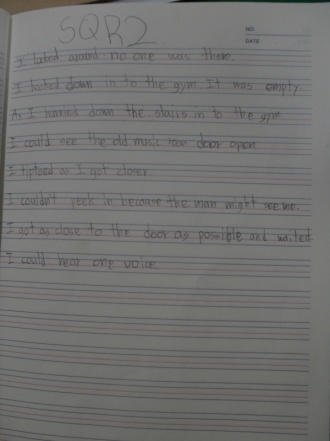 SQR2
NO.
DATE
I looked around no one was there.
I looked down in to the gym. It was empty.
As I hurried down the stairs in to the gym
I could see the old music room door open
I tiptoed as I got closer
I couldn't peek in because the man might see me.
I got as close to the door as possible and waited
I could hear one voice.